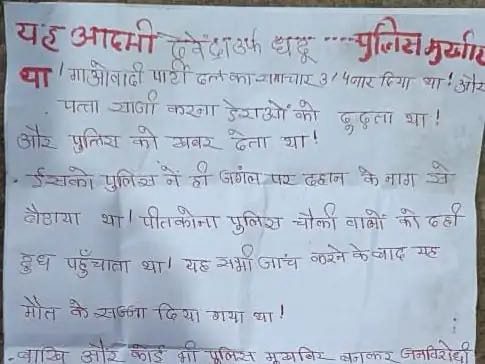 यह आदमी देवेंद्र उर्फ धदू ..... पुलिस मुखबीर
था! माओवादी पार्टी दल का समाचार 3/4 बार दिया था! और
पत्ता साजी करना डेराओं को ढूढ़ता था!
और पुलिस को खबर देता था!
ईसको पुलिस नें ही जगंल पर दहान के नाम से
बैठाया था! पीतकोना पुलिस चौकी वालों को दही
दुध पहुँचाता था! यह सभी जांच करने के बाद यह
मौत के सज्जा दिया गया था!
बाखि और कोई भी पुलिस मुखबिर बनकर जनविरोधी